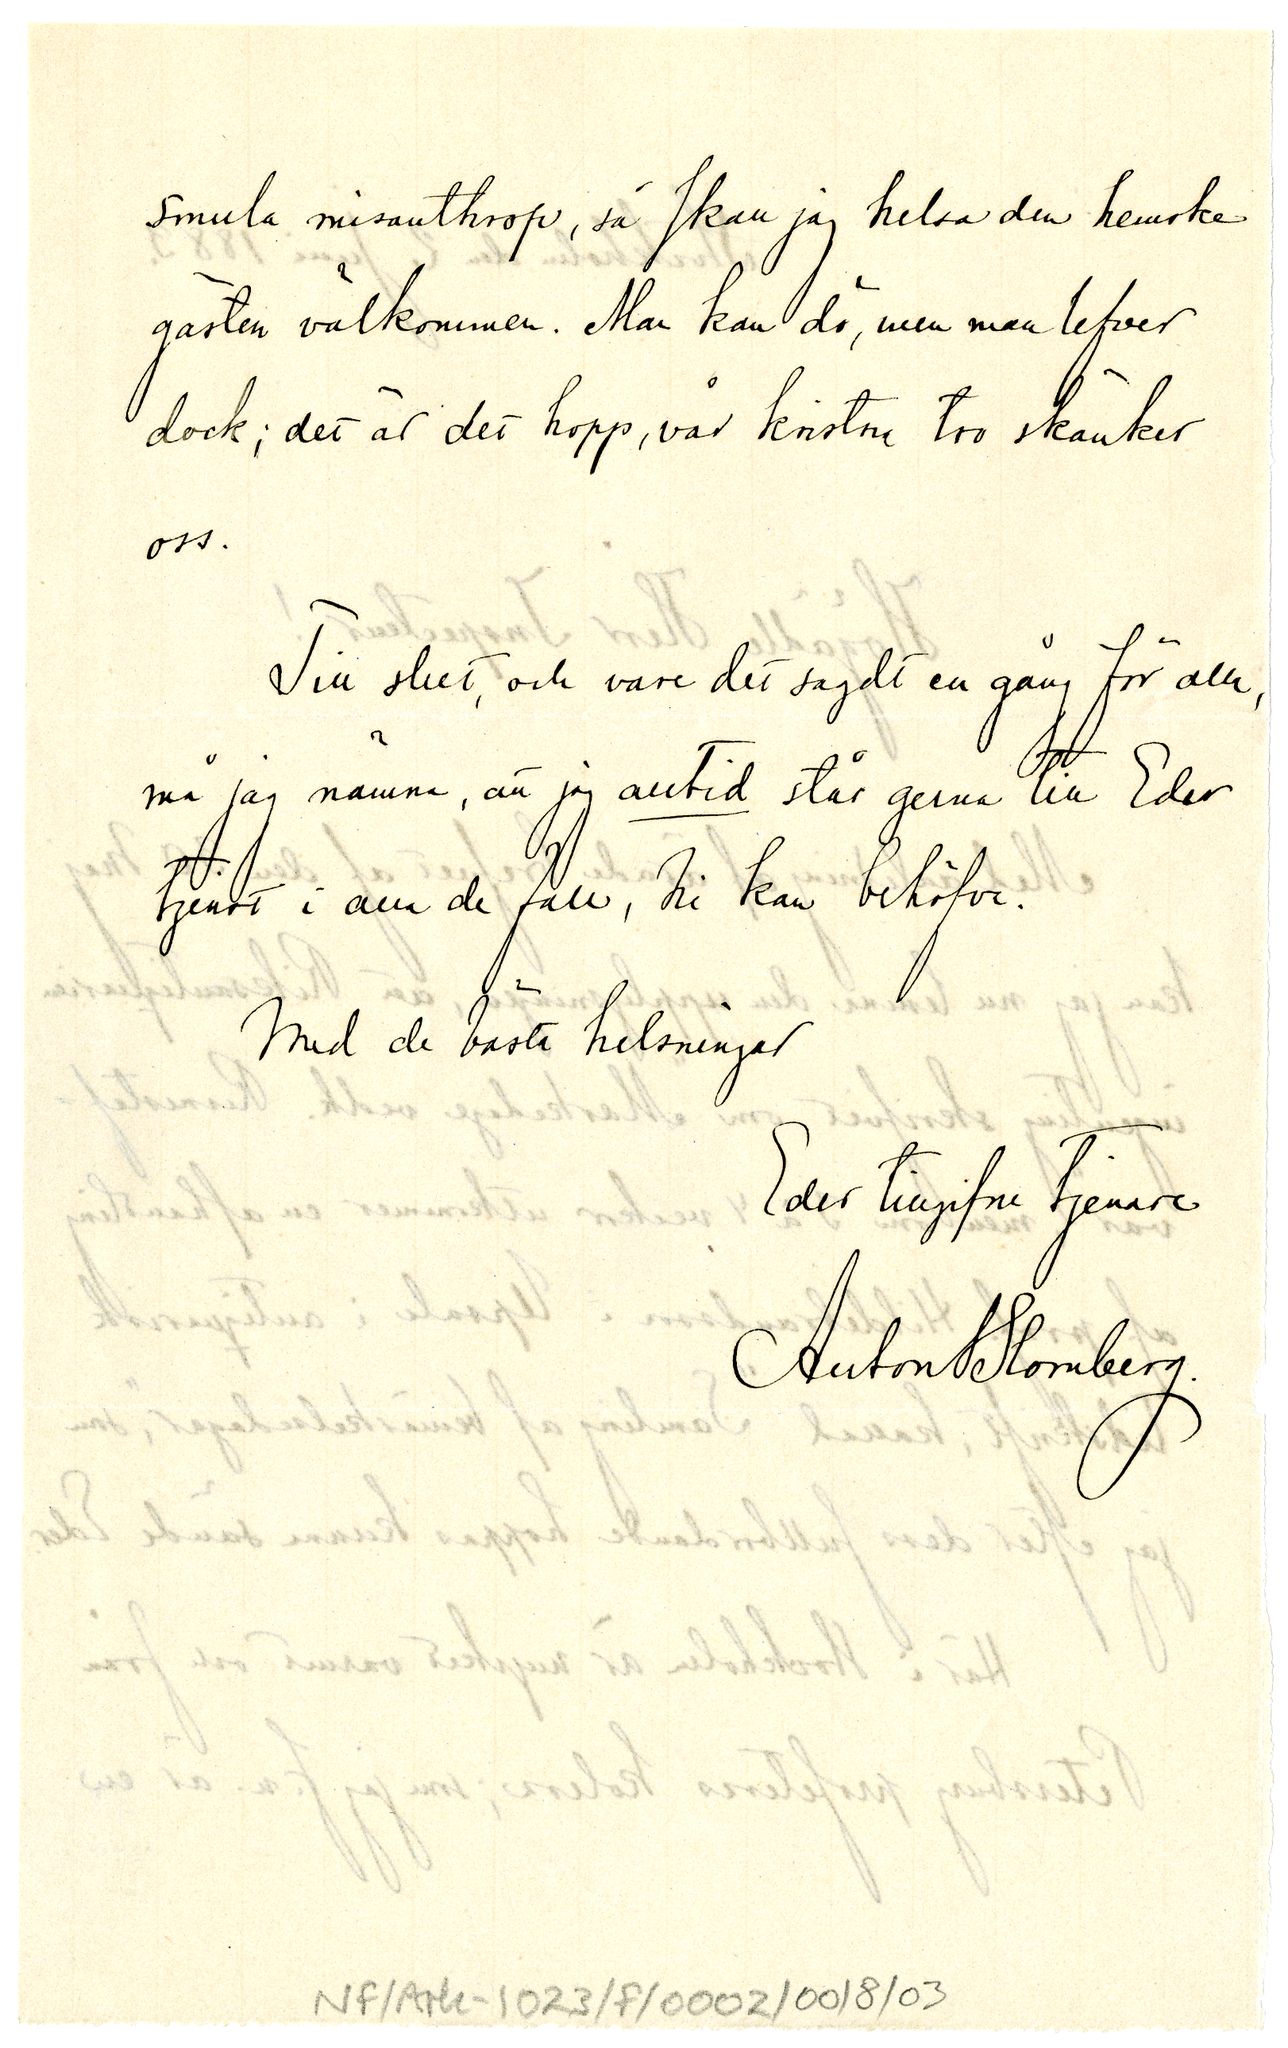 smula misanthrop, så skan jag helsa den hemske
gästen välkommen. Man kan dö, men man lefver
dock; det är det hopp, vår kristna tro skänker
oss.
Till slut, och vare det sagdt en gång för alla,
må jag nämna, att jag alltid står gerna till Eder
tjenst i alla de fall, Ni kan behöfva.
Med de bästa helsningar
Eder tillgifne tjenare
Anton Blomberg.
NF/Ark-1023/F/0002/0018/03